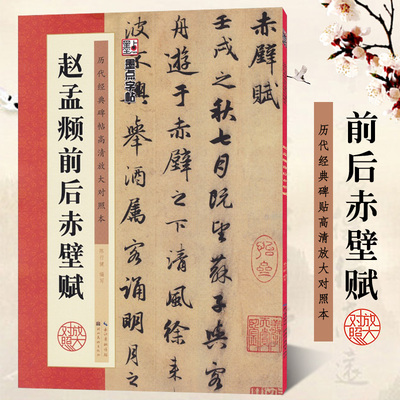 赵孟𫖯前后赤壁赋
历代经典碑帖高清放大对照本
墨点字帖
赤壁赋
壬戌之秋七月既望苏子与客
舟游于赤壁之下清风徐来
波不兴举酒属客诵明月
前后赤壁赋
历代经典碑贴高清放大对照本
放大对照